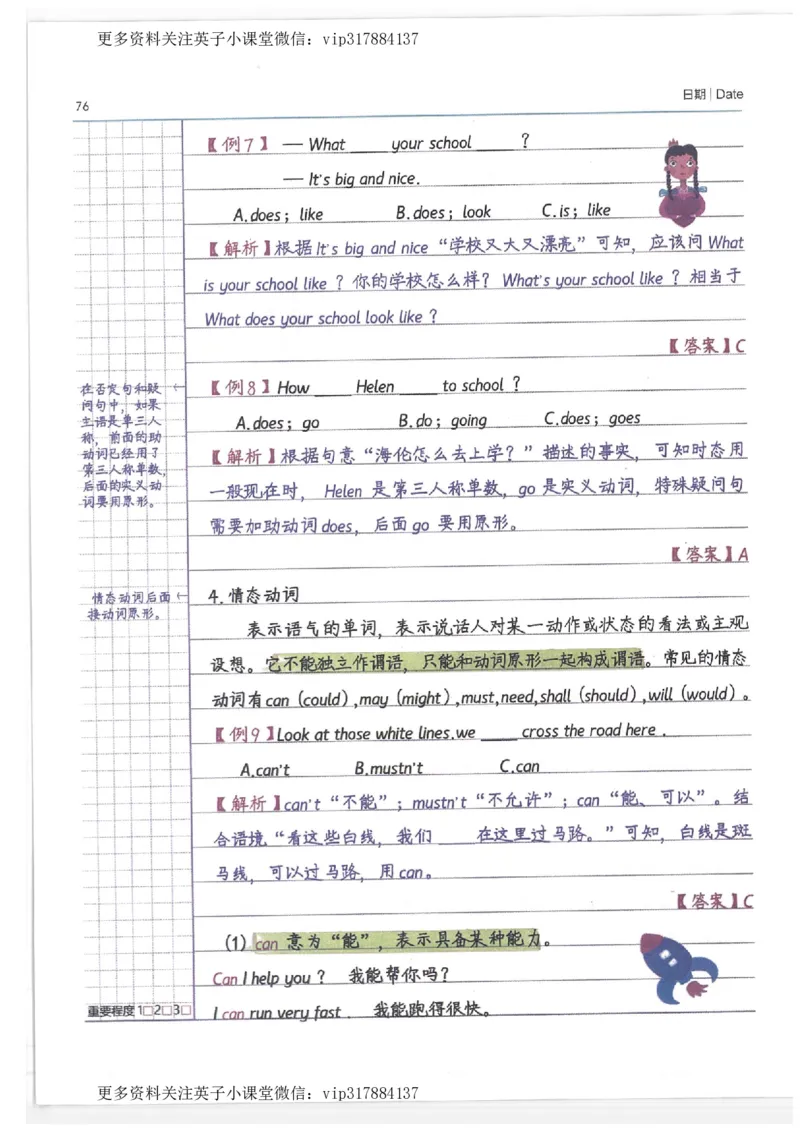 更多资料关注英子小课堂微信：vip317884137
76
日期 | Date
【例7】— What ____ your school ____ ？
— It's big and nice.
A.does；like B.does；look C.is；like
【解析】根据It's big and nice“学校又大又漂亮”可知，应该问What
is your school like ？你的学校怎么样？ What's your school like ？相当于
What does your school look like ？
【答案】C
在否定句和疑
问句中，如果
主语是单三人
称，前面的助
动词已经用了
第三人称单数，
后面的实义动
词要用原形。
【例8】How ____ Helen ____ to school ？
A.does；go B.do；going C.does；goes
【解析】根据句意“海伦怎么去上学？”描述的事实，可知时态用
一般现在时， Helen 是第三人称单数，go 是实义动词，特殊疑问句
需要加助动词does，后面go 要用原形。
【答案】A
情态动词后面
接动词原形。
4.情态动词
表示语气的单词，表示说话人对某一动作或状态的看法或主观
设想。它不能独立作谓语，只能和动词原形一起构成谓语。常见的情态
动词有can（could）,may（might）,must,need,shall（should）,will（would）。
【例9】Look at those white lines.we ____ cross the road here .
A.can't B.mustn't C.can
【解析】can't“不能”；mustn't“不允许”；can“能、可以”。结
合语境“看这些白线，我们 ____ 在这里过马路。”可知，白线是斑
马线，可以过马路，用can。
【答案】C
（1）can 意为“能”，表示具备某种能力。
Can I help you ？ 我能帮你吗？
I can run very fast . 我能跑得很快。
重要程度 1□2□3□
更多资料关注英子小课堂微信：vip317884137